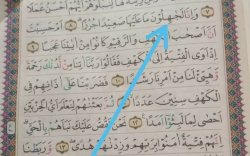 أَحْسَنُ عَمَلًا
٧ وَإِنَّا لَجَٰعِلُونَ مَا عَلَيْهَا صَعِيدًا جُرُزًا ٨ أَمْ حَسِبْتَ
أَنَّ أَصْحَٰبَ ٱلْكَهْفِ وَٱلرَّقِيمِ كَانُوا۟ مِنْ ءَايَٰتِنَا عَجَبًا ٩
إِذْ أَوَى ٱلْفِتْيَةُ إِلَى ٱلْكَهْفِ فَقَالُوا۟ رَبَّنَآ ءَاتِنَا مِن لَّدُنكَ رَحْمَةً
وَهَيِّئْ لَنَا مِنْ أَمْرِنَا رَشَدًا ١٠ فَضَرَبْنَا عَلَىٰٓ ءَاذَانِهِمْ فِى
ٱلْكَهْفِ سِنِينَ عَدَدًا ١١ ثُمَّ بَعَثْنَٰهُمْ لِنَعْلَمَ أَىُّ ٱلْحِزْبَيْنِ
أَحْصَىٰ لِمَا لَبِثُوٓا۟ أَمَدًا ١٢ نَّحْنُ نَقُصُّ عَلَيْكَ نَبَأَهُم بِٱلْحَقِّ
إِنَّهُمْ فِتْيَةٌ ءَامَنُوا۟ بِرَبِّهِمْ وَزِدْنَٰهُمْ هُدًى ١٣ وَرَبَطْنَا